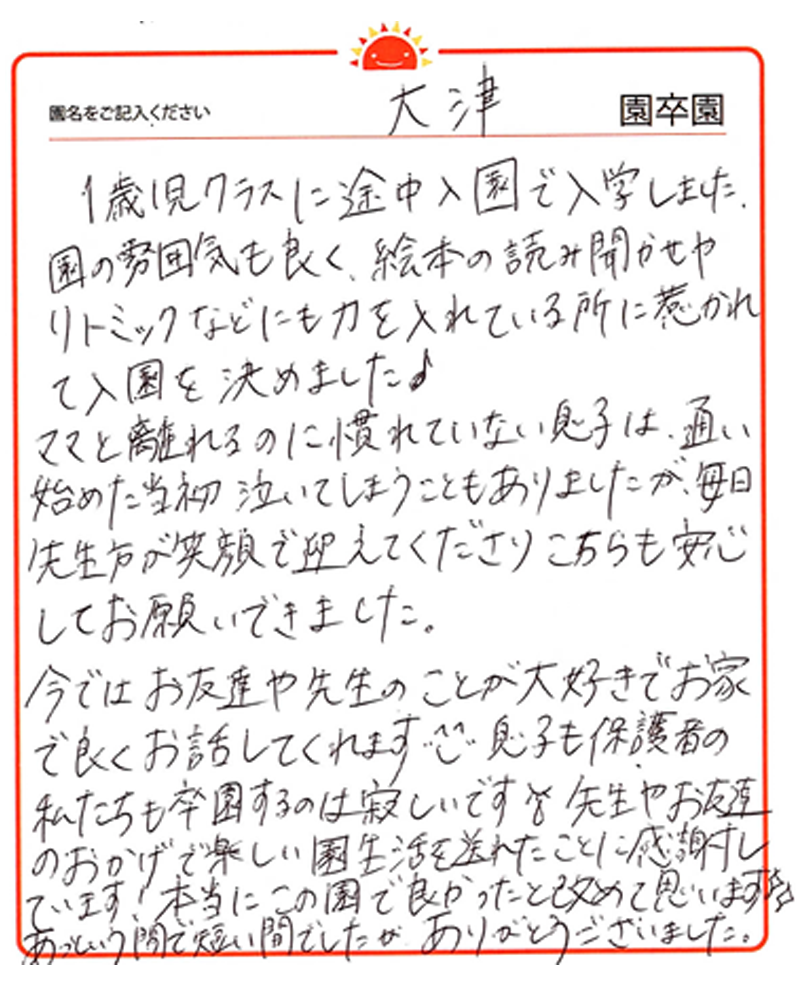 園名をご記入ください 大津 園卒園
1歳児クラスに途中入園で入学しました、
園の雰囲気も良く、絵本の読み聞かせや
リトミックなどにも力を入れている所に惹かれ
て入園を決めました♪
ママと離れるのに慣れていない息子は、通い
始めた当初 泣いてしまうこともありましたが、毎日
先生方が笑顔で迎えてくださりこちらも安心
してお願いできました。
今ではお友達や先生のことが大好きでお家
で良くお話してくれます 息子も保護者の
私たちも卒園するのは寂しいです 先生やお友達
のおかげで楽しい園生活を送れたことに感謝し
ています!本当にこの園で良かったと改めて思います
あっという間で短い間でしたが ありがとうございました。